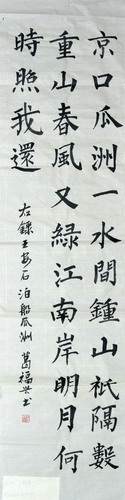 京口瓜洲一水間鍾山祇隔數
重山春風又綠江南岸明月何
時照我還
右錄王安石泊船瓜洲 葛福興書